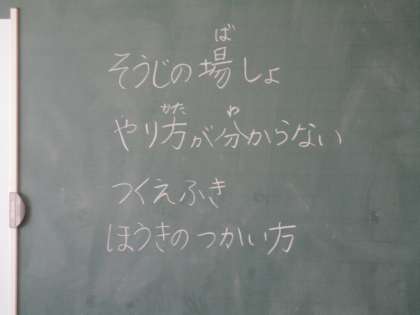 そうじの場しょ
やり方が分からない
つくえふき
ほうきのつかい方